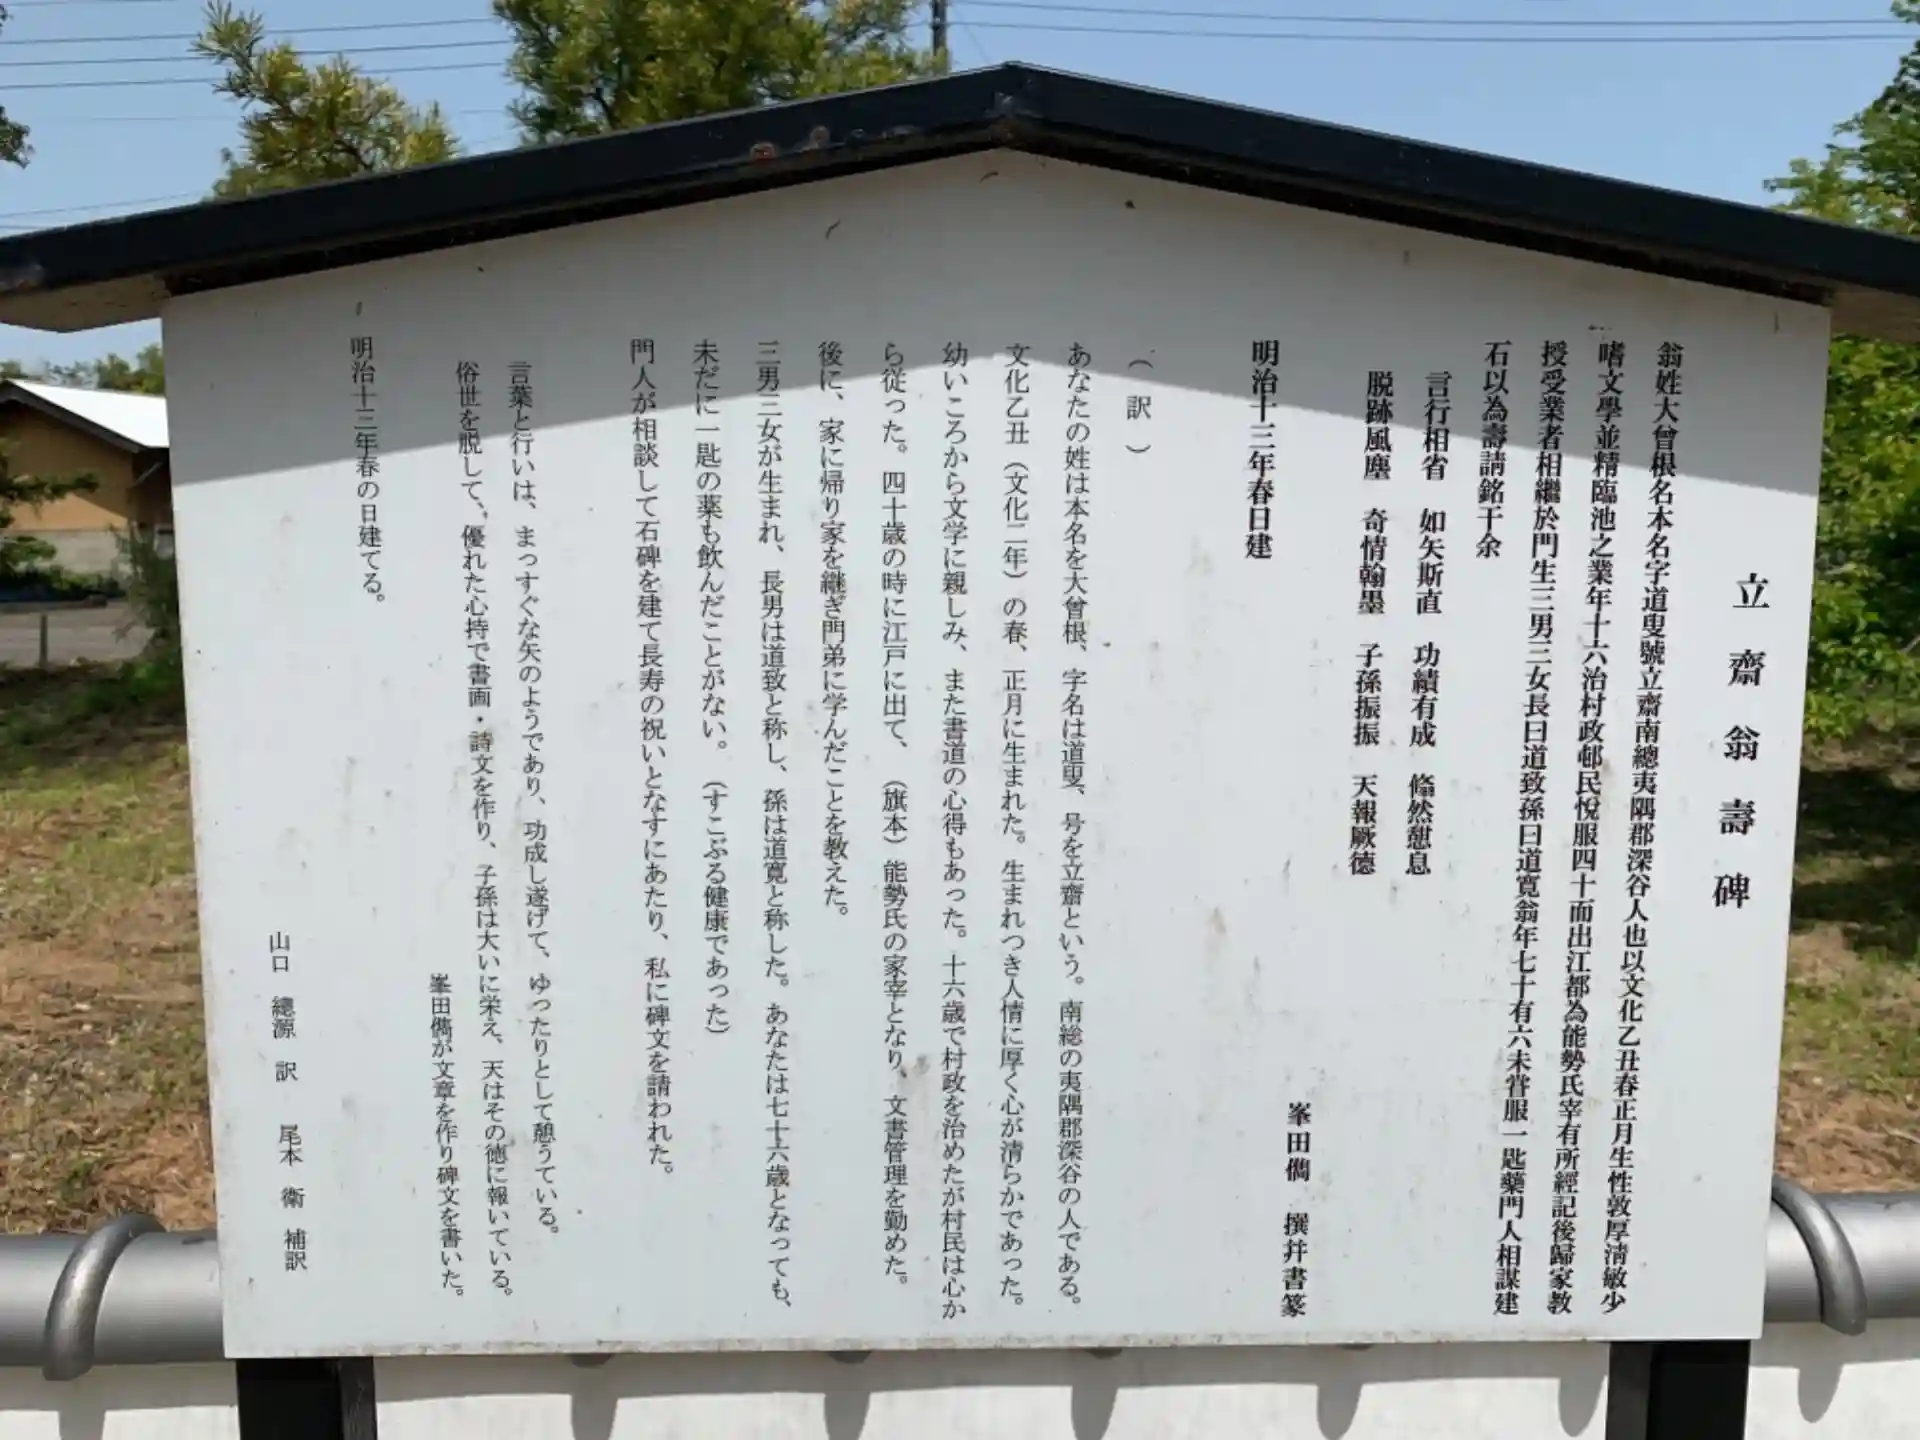 立齋翁壽碑
翁姓大曾根名本名字道叟號立齋南總夷隅郡深谷人也以文化乙丑春正月生性敦厚淸敏少
嗜文學並精臨池之業年十六治村政邨民悅服四十而出江都為能勢氏宰有所經記後歸家教
授受業者相繼於門生三男三女長曰道致孫曰道寛翁年七十有六未甞服一匙藥門人相謀建
石以為壽請銘于余
言行相省 如矢斯直 功績有成 翛然憩息
脱跡風塵 奇情翰墨 子孫振振 天報厥德
峯田儁 撰并書篆
明治十三年春日建
（訳）
あなたの姓は本名を大曾根、字名は道叟、号を立齋という。南総の夷隅郡深谷の人である。
文化乙丑（文化二年）の春、正月に生まれた。生まれつき人情に厚く心が清らかであった。
幼いころから文学に親しみ、また書道の心得もあった。十六歳で村政を治めたが村民は心か
ら従った。四十歳の時に江戸に出て、（旗本）能勢氏の家宰となり、文書管理を勤めた。
後に、家に帰り家を継ぎ門弟に学んだことを教えた。
三男三女が生まれ、長男は道致と称し、孫は道寛と称した。あなたは七十六歳となっても、
未だに一匙の薬も飲んだことがない。（すこぶる健康であった）
門人が相談して石碑を建て長寿の祝いとなすにあたり、私に碑文を請われた。
言葉と行いは、まっすぐな矢のようであり、功成し遂げて、ゆったりとして憩うている。
俗世を脱して、優れた心持で書画・詩文を作り、子孫は大いに栄え、天はその徳に報いている。
峯田儁が文章を作り碑文を書いた。
明治十三年春の日建てる。
山口 總源 訳 尾本 衛 補訳